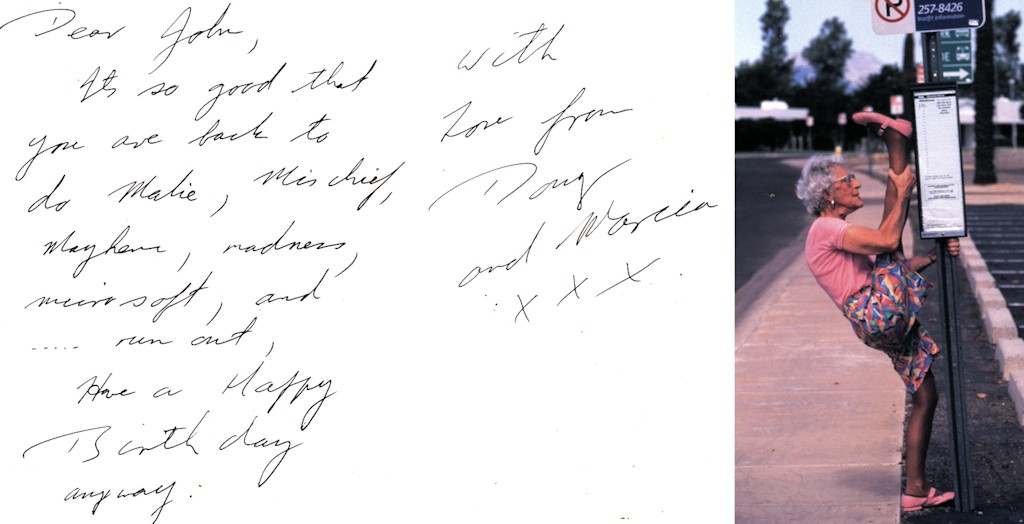 Dear John,
It's so good that
you are back to
do Malie, Mischief,
Mayhem, madness,
microsoft, and
..... run out,
Have a Happy
Birthday
anyway.
with
Love from
Doug
and Marcia
x x x.
257-8426
transit information